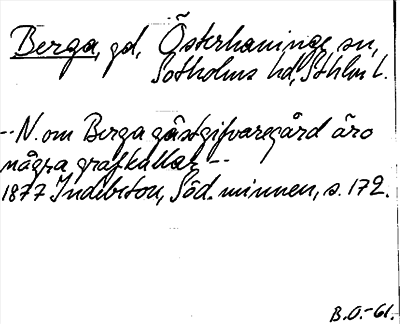 Berga, gd, Österhaninge sn,
Sotholms hd, Sthlms l.
-- N. om Berga gästgifvaregård äro
några grafkullar --
1877 Indebetou, Söd. minnen, s. 172.
B.O.-61.